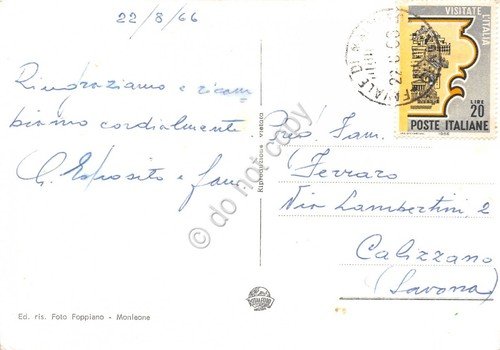 22/8/66
Ringraziamo e ricam
biamo cordialmente
G. Esposito e fam.
Ed. ris. Foto Foppiano - Monleone
Riproduzione vietata
VISITATE L'ITALIA
LIRE
20
POSTE ITALIANE
Preg. Fam.
Ferraro
Via Lambertini 2
Calizzano
(Savona)
do not copy